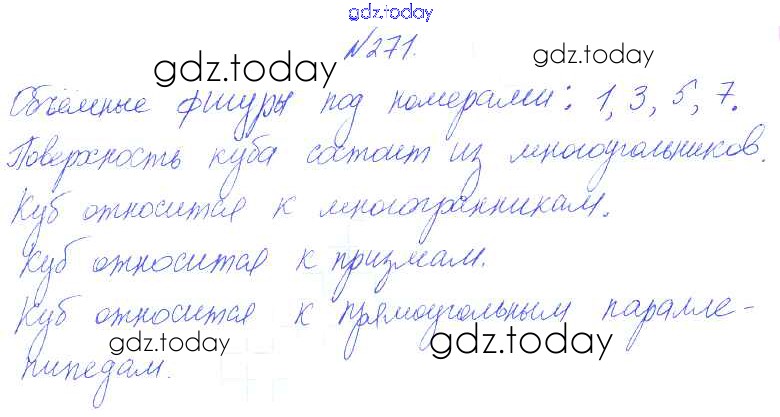 gdz.today
№271.
gdz.today gdz.today
Объёмные фигуры под номерами: 1, 3, 5, 7.
Поверхность куба состоит из многоугольников.
Куб относится к многогранникам.
Куб относится к призмам.
Куб относится к прямоугольным паралле-
gdz.today gdz.today
пипедам.